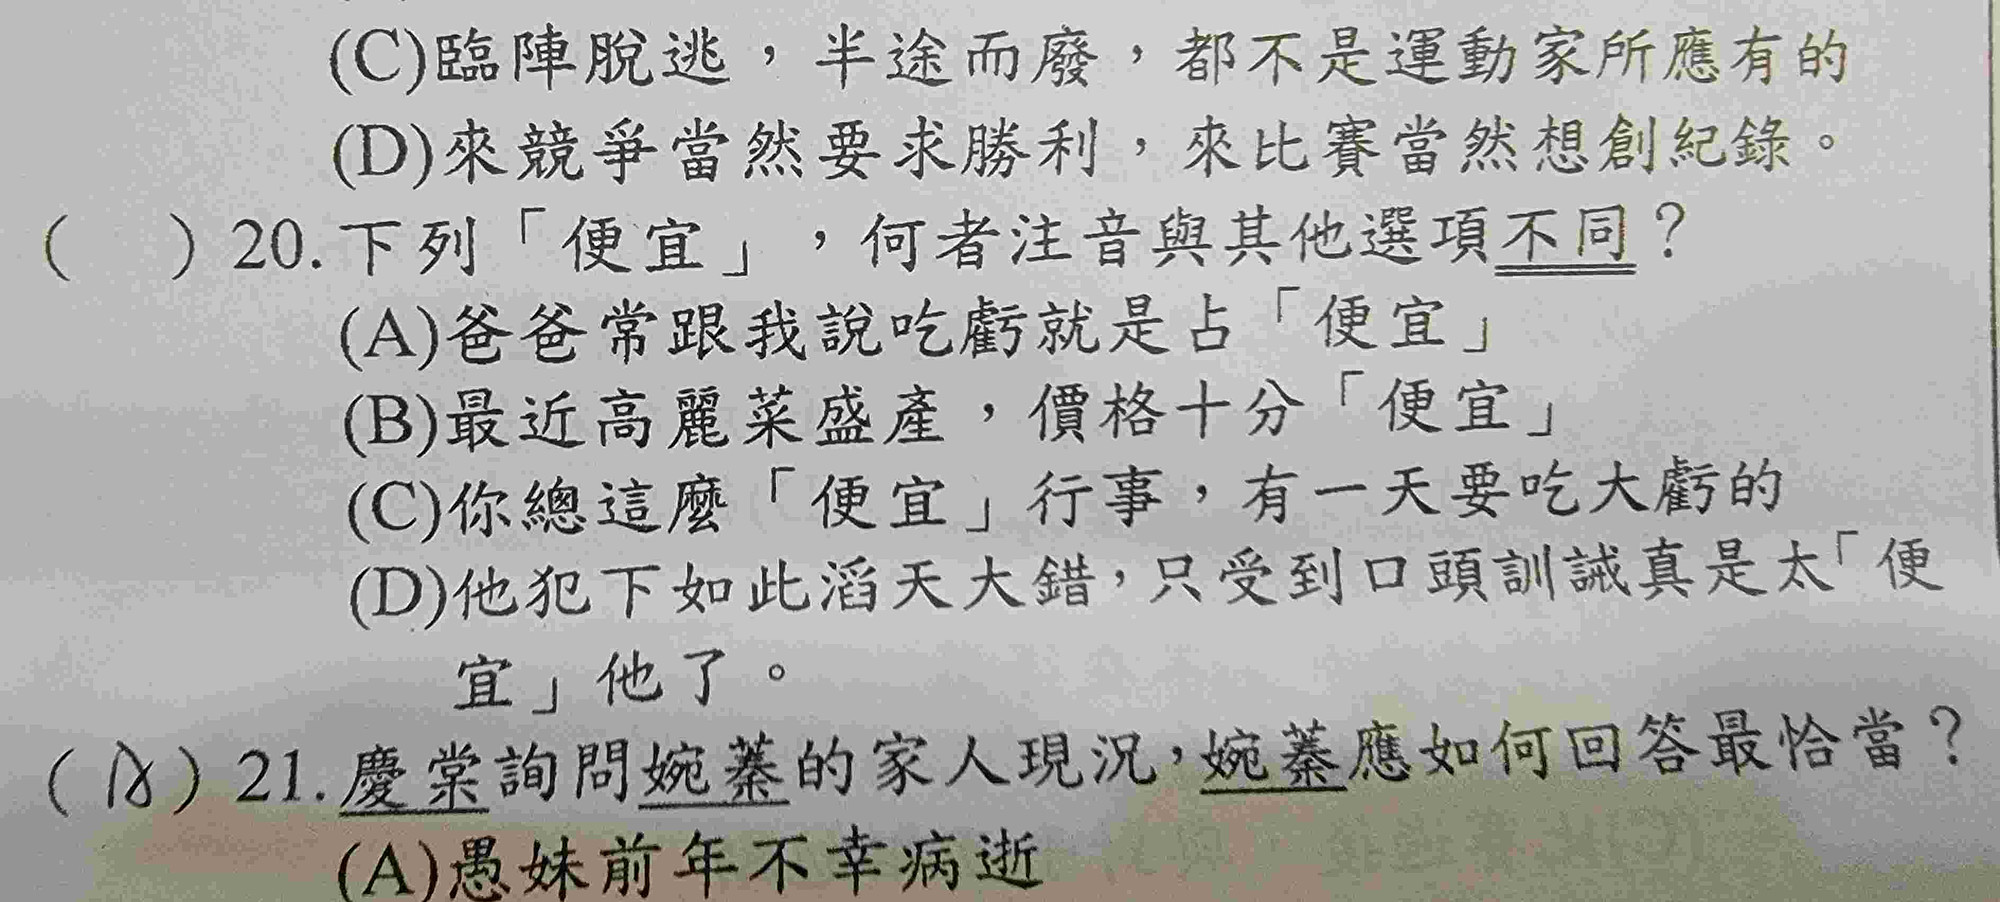 (C)臨陣脫逃，半途而廢，都不是運動家所應有的
(D)來競爭當然要求勝利，來比賽當然想創紀錄。
（　）20.下列「便宜」，何者注音與其他選項不同？
(A)爸爸常跟我說吃虧就是占「便宜」
(B)最近高麗菜盛產，價格十分「便宜」
(C)你總這麼「便宜」行事，有一天要吃大虧的
(D)他犯下如此滔天大錯，只受到口頭訓誡真是太「便
宜」他了。
（　）21.慶棠詢問婉蓁的家人現況，婉蓁應如何回答最恰當？
(A)愚妹前年不幸病逝